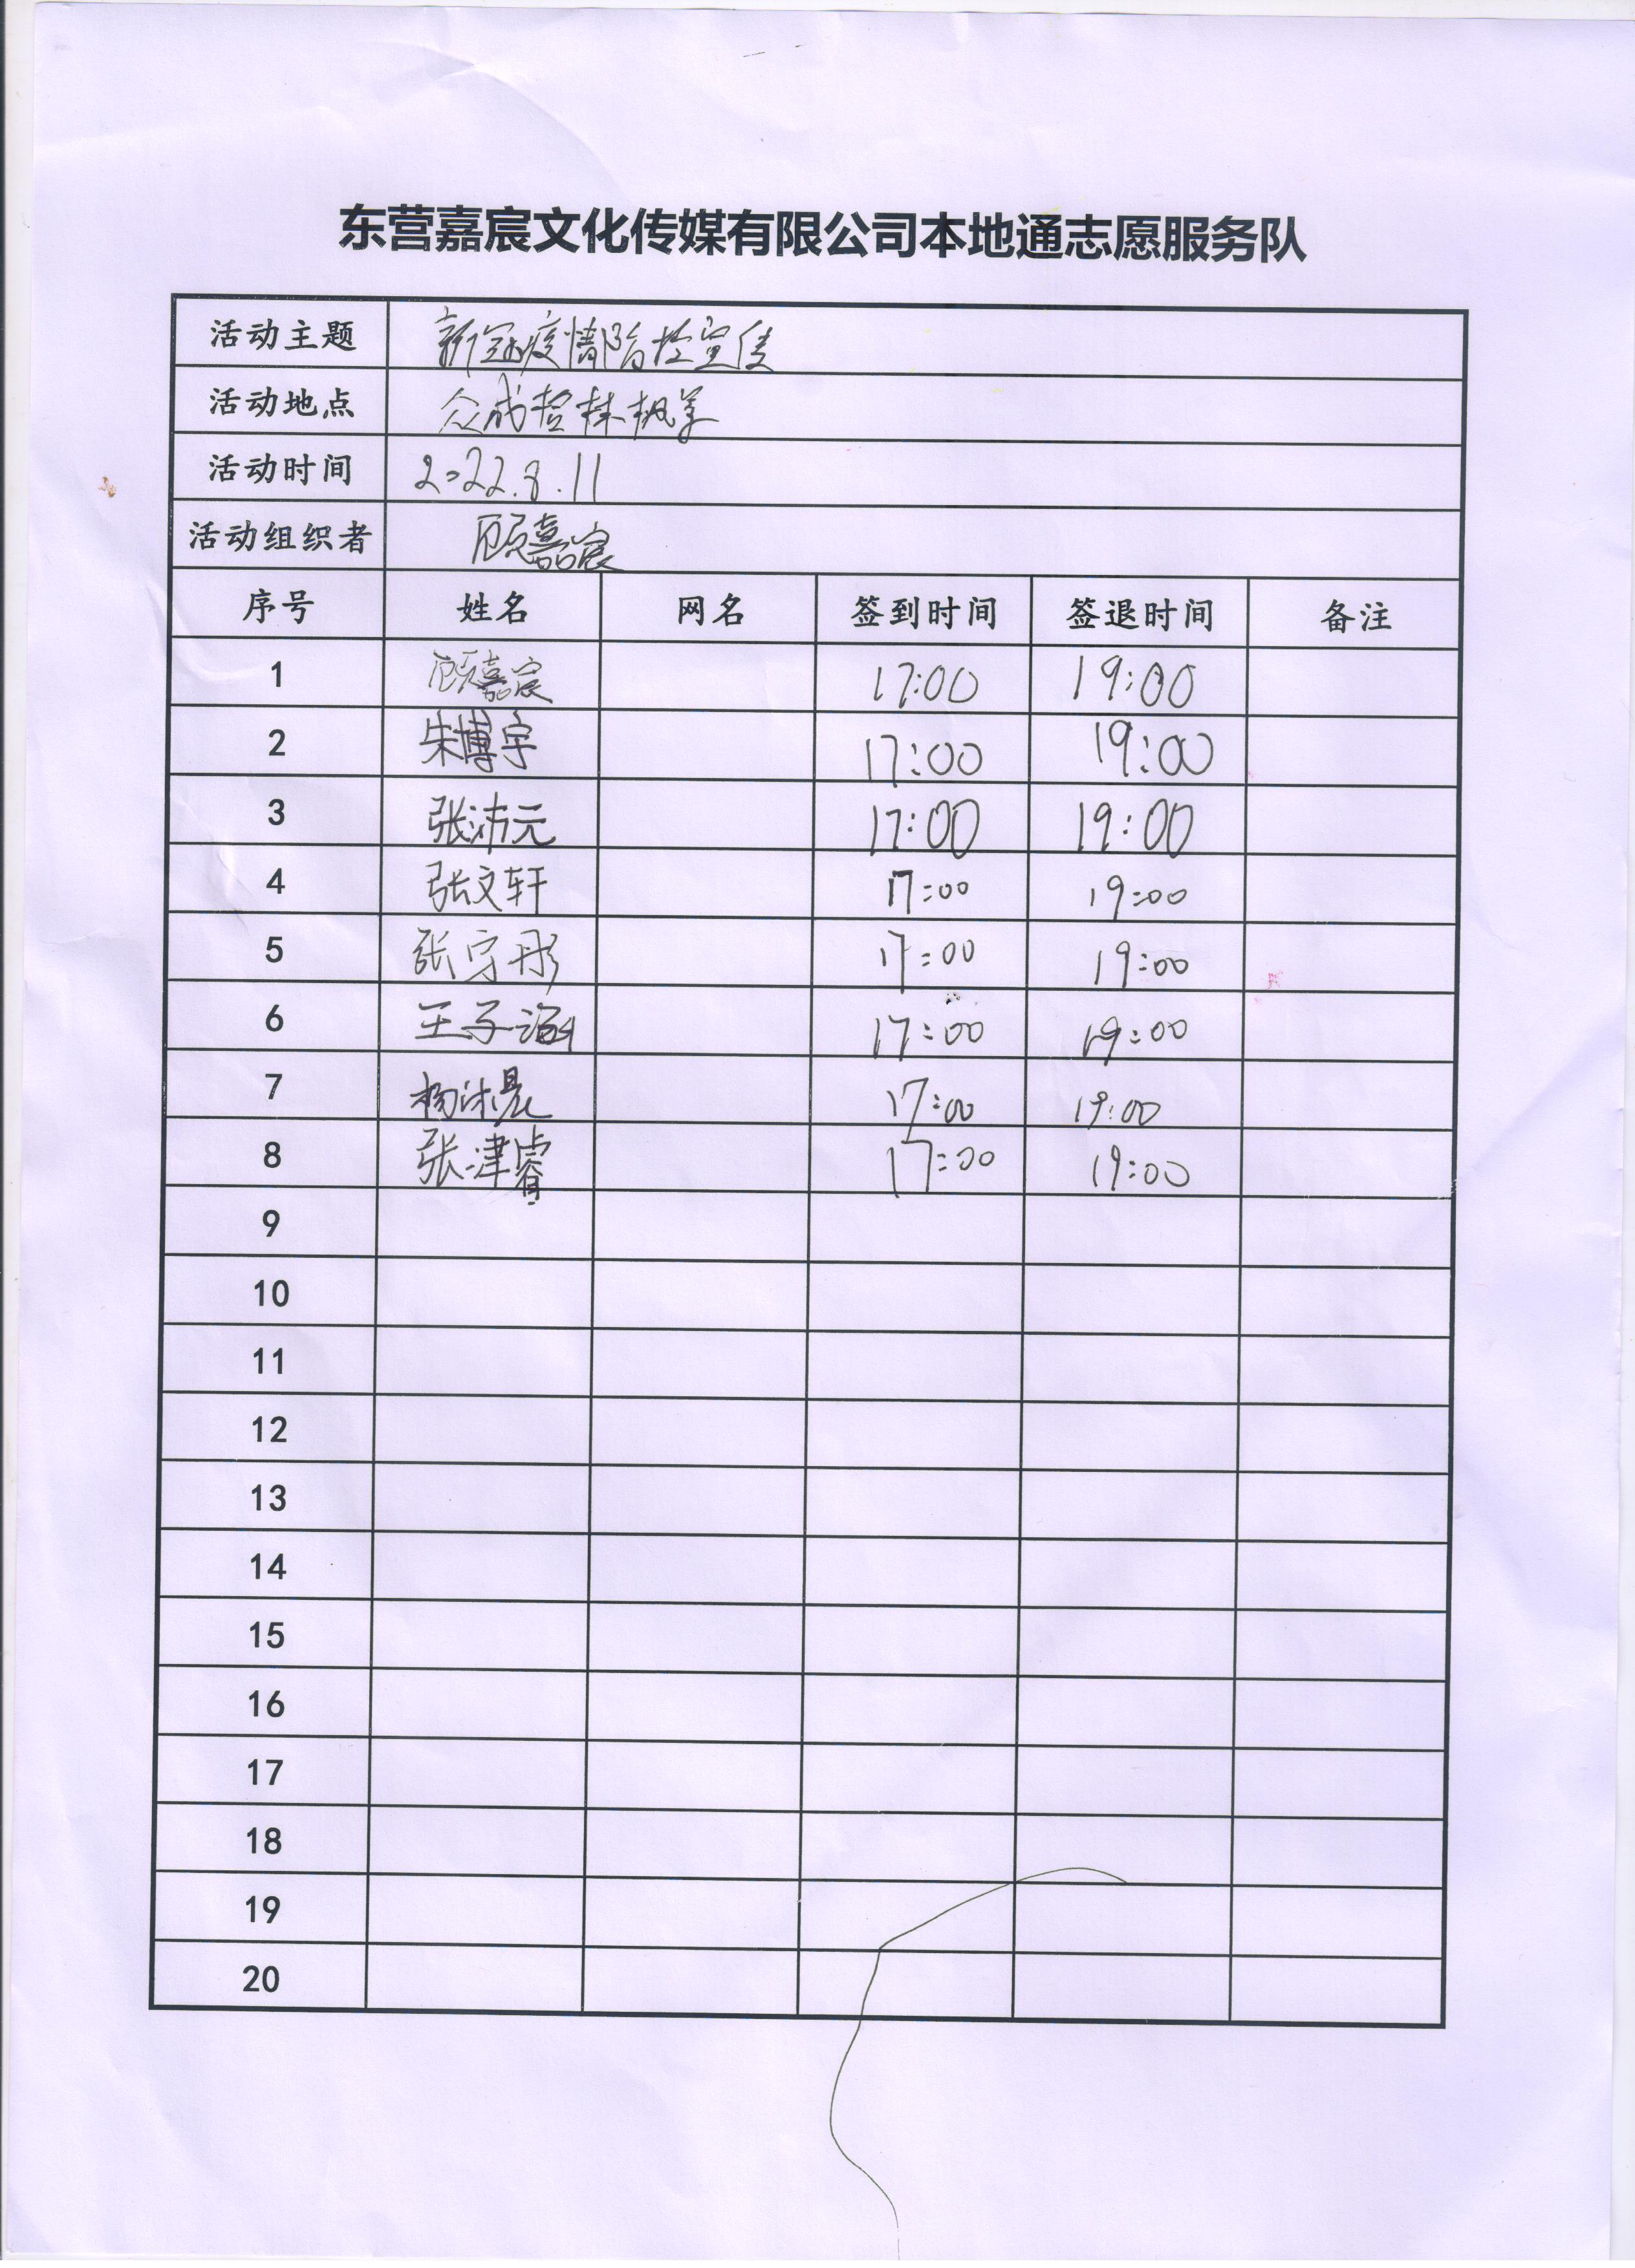 东营嘉宸文化传媒有限公司本地通志愿服务队
活动主题 新冠疫情防控宣传
活动地点 众成哲林枫华
活动时间 2022.8.11
活动组织者 顾嘉宸
序号 姓名 网名 签到时间 签退时间 备注
1 顾嘉宸 17:00 19:00
2 朱博宇 17:00 19:00
3 张沛元 17:00 19:00
4 张文轩 17:00 19:00
5 张宇彤 17:00 19:00
6 王子涵 17:00 19:00
7 杨沐晨 17:00 19:00
8 张津睿 17:00 19:00
9
10
11
12
13
14
15
16
17
18
19
20